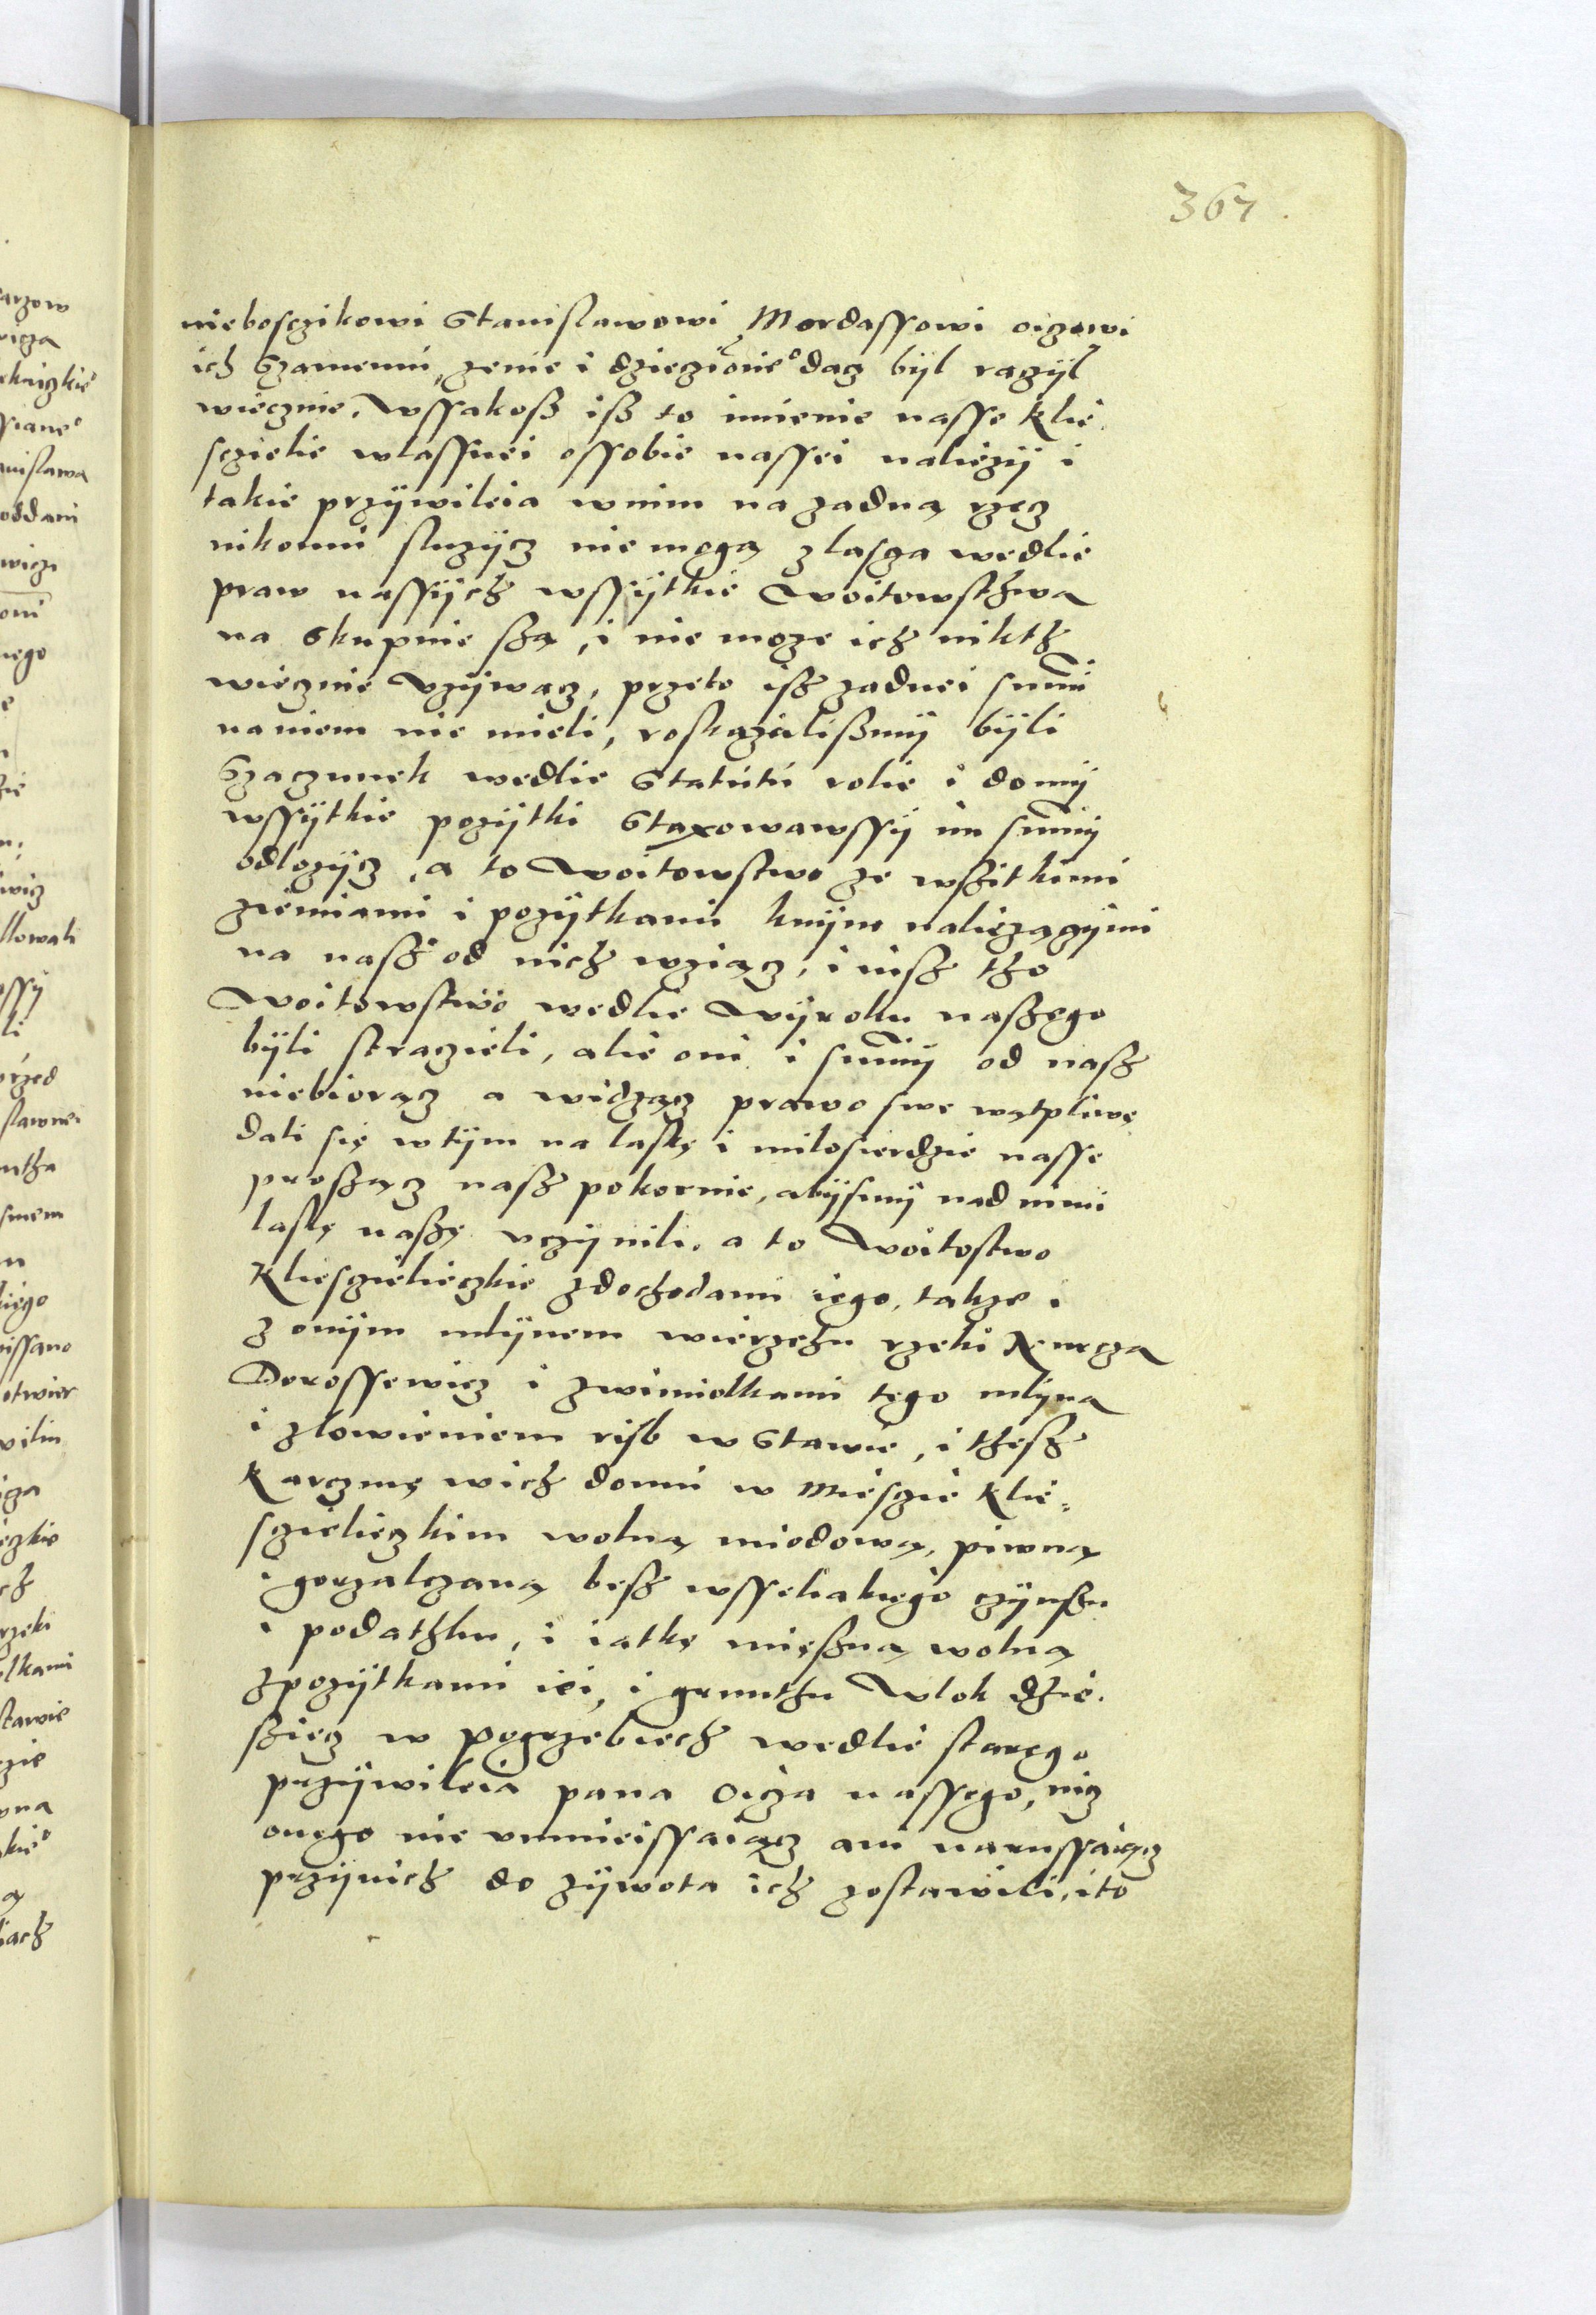 367
niebosczikowi Stanislawowi Mordassowi oiczowi
ich Szamemu, zenie i dzieczionie° dacz byl raczyl
wiecznie. Wssakosz isz to imienie nasse Klie
sczielie wlassnei ossobie nassei naliezÿ i
takie przÿwileia w nim na zadną rzecz
nikomu sluzÿcz nie mogą zlascza wedlie
praw nassÿch wssÿtkie Woitowsthwa
na Skupnie szą, i nie moze ich nikth
wiecznie Vzÿwacz, przeto isz zadnei summi
naniem nie mieli, roskazalismÿ bÿli
Szaczunek wedlie Statutu rolie i domÿ
wssÿtkie pozÿtki Staxowawssÿ im summÿ
odlozÿcz, a to Woitowstwo ze wszitkimi
ziemiami i pozÿtkami knÿm naliezączÿmi
na nasz od nich wziącz, i iusz tho
Woitowstwo wedlie Wÿroku naszego
bÿli straczieli, alie oni i summÿ od nasz
niebiorącz a widzącz prawo swe wątpliwe
dali się w tÿm na laskę i milosierdzie nasse
proszącz nasz pokornie, abÿsmÿ nad nimi
laskę naszę vczÿnili. a to Woitostwo
Kliesczielieczkie zdochodami iego, takze i
z onÿm mlÿnem wierzchu rzeki Nurcza
Dorossewicz i zwimiolkami tego mlÿna
i zlowieniem rÿb w Stawie, i thesz
Karczmę wich domu w Miesczie Klie=
sczielieczkim wolną miodową, piwną
i gorzalczaną besz wsseliakiego czÿnszu
i podathku, i iatkę mięszną wolną
zpozÿtkami iei, i grunthu Wlok dzie.
sziecz w Pogrzebiech wedlie starego
przÿwileia pana Oicza nassego, nicz
onego nie vmnieissaiącz ani narussaiącz
przÿnich do zÿwota ich zostawili, i to